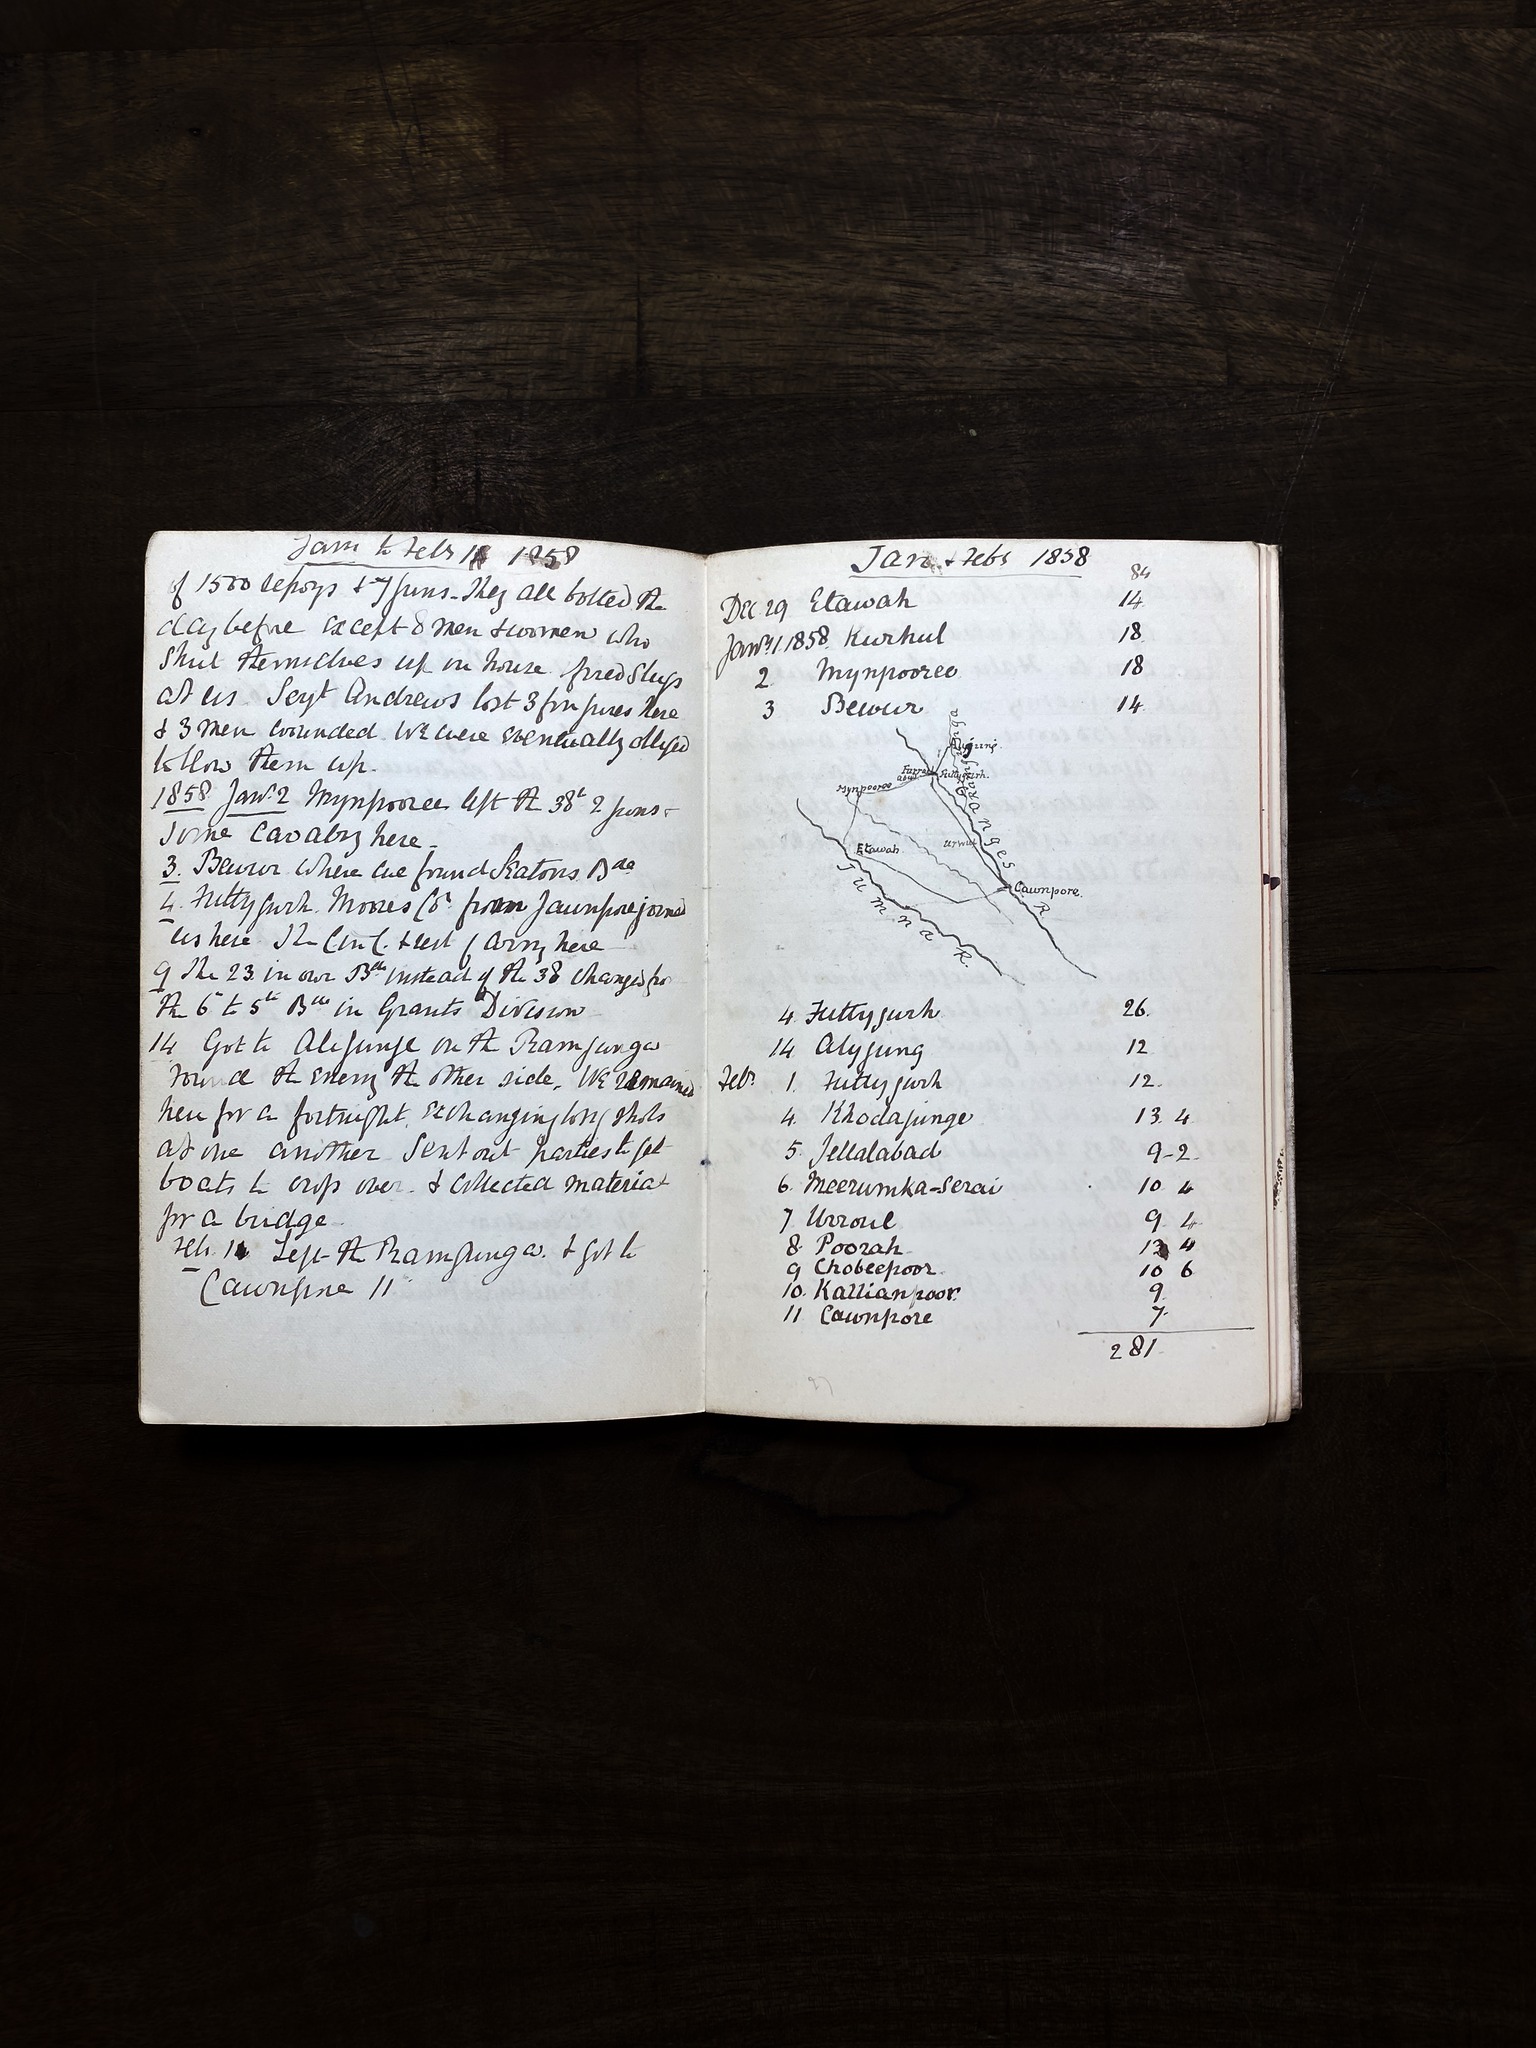 Jan to Feb 1858
of 1500 sepoys & 7 guns. They all bolted the
day before except 8 men & women who
shut themselves up in house fired slugs
at us. Seyt Andrews lost 3 fingers here
& 3 men wounded. We were eventually obliged
to blow them up.
1858 Jany 2 Mynpooree left the 38th 2 guns &
some Cavalry here.
3. Bewur where we found Seatons Bde
4. Futtygurh. Moores Co from Jaunpore joined
us here. The C in C. & rest of army here
9 The 23 in our Bde instead of the 38 changed from
the 6th to 5th Bde in Grants Division
14 Got to Aligunge on the Ramgunga
found the enemy the other side. We remained
here for a fortnight, exchanging long shots
at one another Sent out parties to get
boats to cross over. & collected material
for a bridge
Feb. 1 Left the Ramgunga. & got to
Cawnpore 11
Jan. & Feby 1858
84
Dec 29 Etawah 14
Jany 1. 1858. Kurhul 18
2 Mynpooree 18
3 Bewur 14
Alygunj
Furrackabad
Futtygurh.
Mynpooree
Ramgunga
Ganges R
Etawah
Urwul
Cawnpore.
Jumna R.
4. Futtygurh 26.
14. Alygung 12
Feby. 1. Futtygurh 12.
4. Khodagunge 13. 4.
5. Jellalabad 9-2.
6. Meerumka-Serai 10. 4
7 Urroul 9. 4.
8. Poorah 13 4
9 Chobeepoor 10 6
10. Kallianpoor. 9.
11 Cawnpore 7.
281